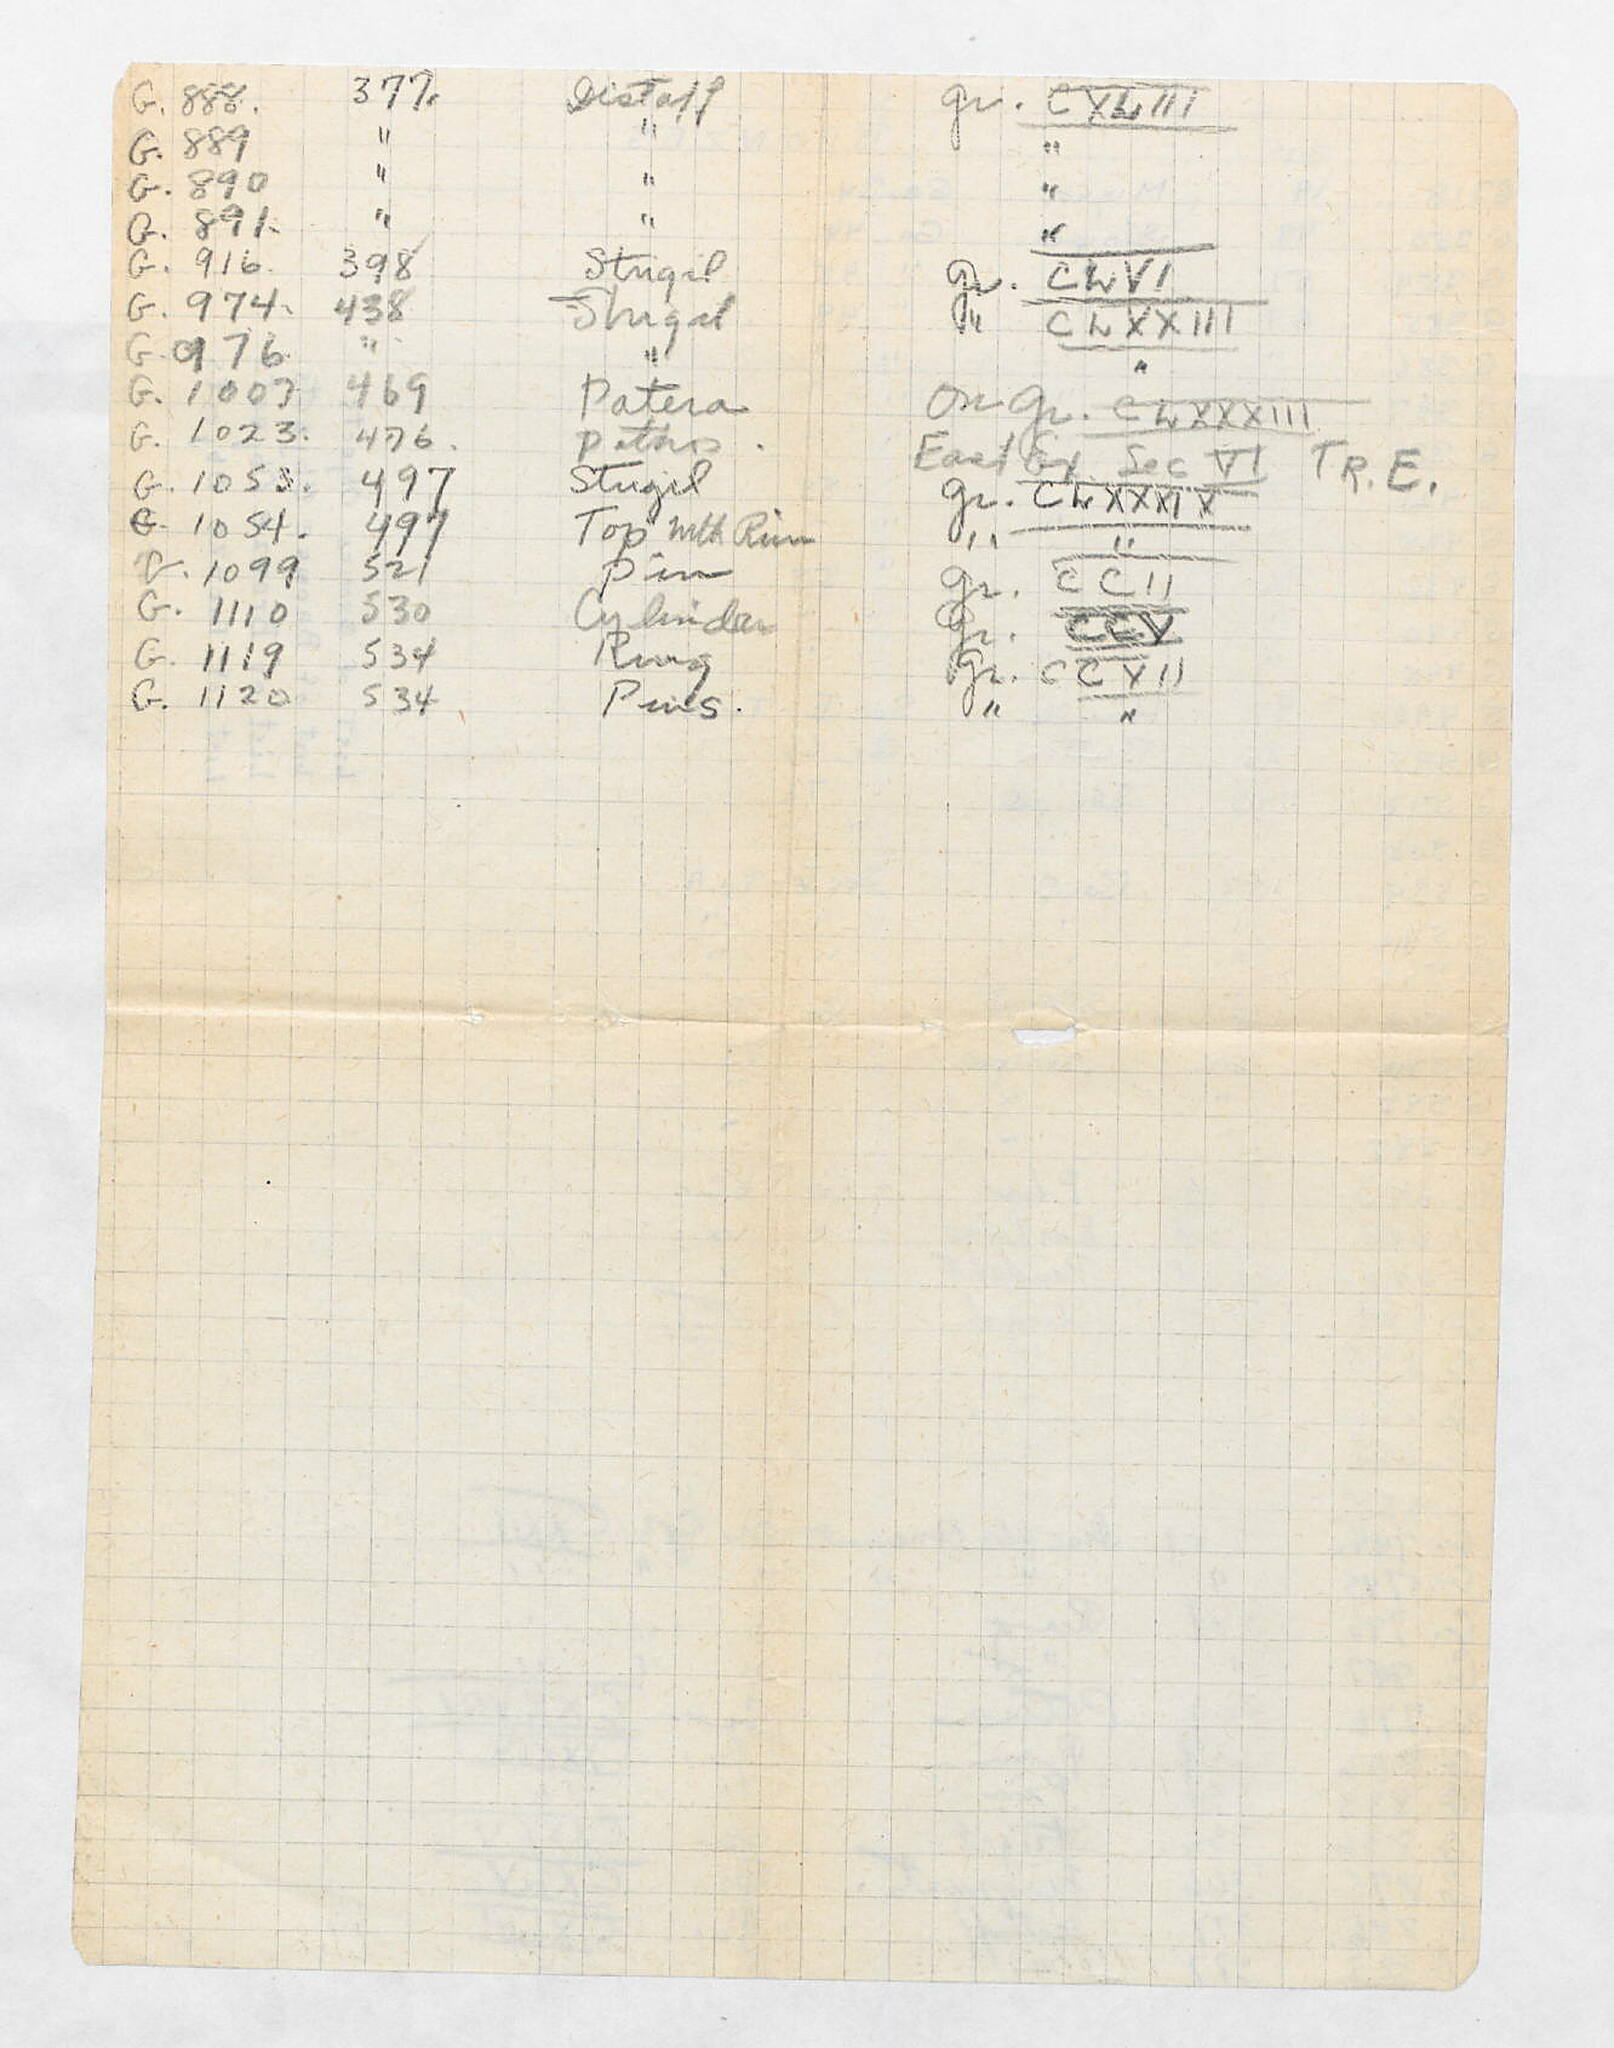 G. 888. 377. Distaff gr. CXLIII
G. 889 " " "
G. 890 " " "
G. 891. " " "
G. 916. 398 Strigil gr. CLVI
G. 974. 438 Strigil " CLXXIII
G. 976. " " "
G. 1007 469 Patera On Gr. CLXXXIII
G. 1023. 476. East Ex. Sec VI TR. E.
G. 1053. 497 Strigil gr. CLXXXIX
G. 1054. 497 Top with Rim " "
G. 1099 521 Pin gr. CCII
G. 1110 530 Cylinder Gr. CCV
G. 1119 534 Ring Gr. CCXII
G. 1120 534 Pins. " "